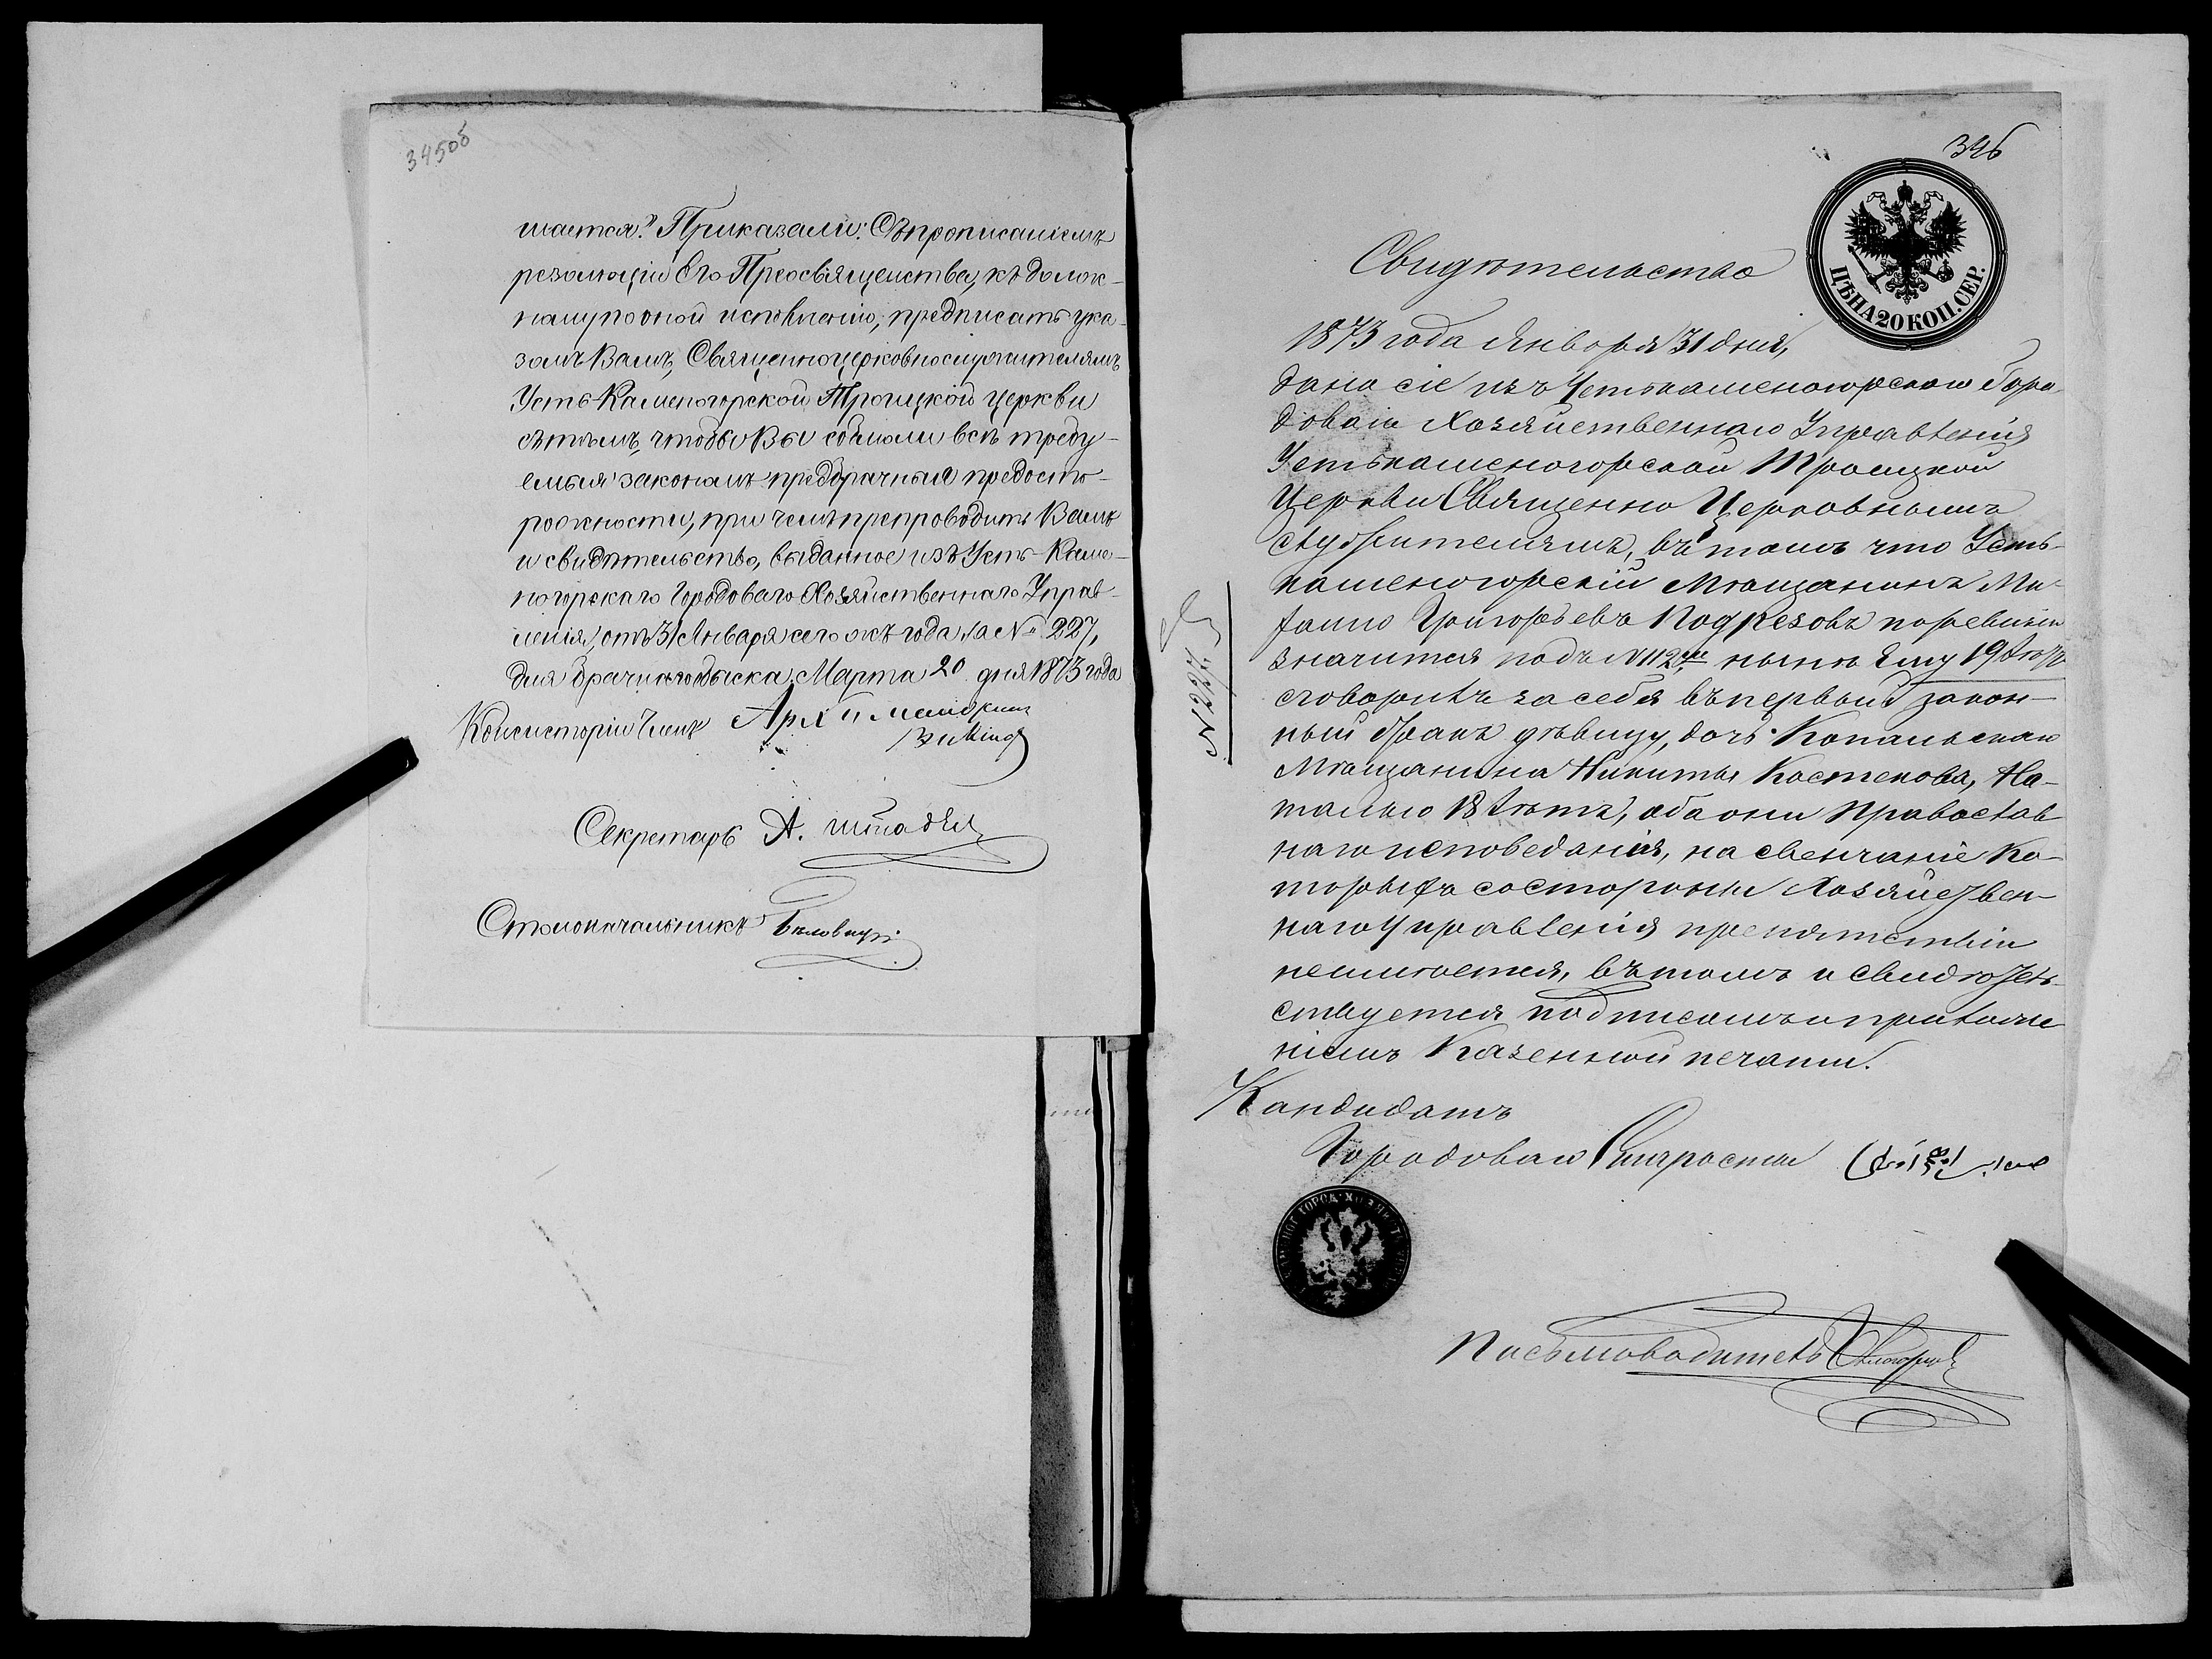 345об
шается." Приказали: Съ прописаніемъ
резолюціи Его Преосвященства, къ долж-
ному по оной исполненію, предписать ука-
зомъ Вамъ, Священноцерковнослужителямъ
Усть-Каменогорской Троицкой церкви
съ тѣмъ, чтобы Вы соблюли всѣ требу-
емыя закономъ предбрачныя предосто-
рожности, при чемъ препроводить Вамъ
и свидѣтельство, выданное изъ Усть-Каме-
ногорскаго Городоваго Хозяйственнаго Управ-
ленія, отъ 31 Января сего же года за № 227,
для брачнаго обыска. Марта 20 дня 1873 года
Консисторіи Членъ Архимандритъ
Секретарь А.
Столоначальникъ
346
ЦѢНА 20 КОП. СЕР.
Свидѣтельство
1873 года Января 31 дня,
дано сіе изъ Устькаменогорскаго Горо-
доваго Хозяйственнаго Управленія
Устькаменогорской Троицкой
Церкви Священно Церковнымъ
Служителямъ, въ томъ что Усть-
каменогорскій Мѣщанинъ
Григорьевъ Подрезовъ по ревизіи
значится подъ № 112мъ нынѣ Ему 19 лѣтъ
сговорилъ за себя въ первый закон-
ный бракъ дѣвицу, дочь Копальскаго
Мѣщанина Никиты Костенова, На-
талью 18 лѣтъ, оба они Православ-
наго исповеданія, на свенчаніе Ко-
торыхъ со стороны Хозяйствен-
наго Управленія препятствіи
неимѣется, въ томъ и свидѣтель-
ствуется подписомъ и приложе-
ніемъ Казенной печати.
№ 227
Кандидатъ
Городоваго Старосты
Письмоводитель